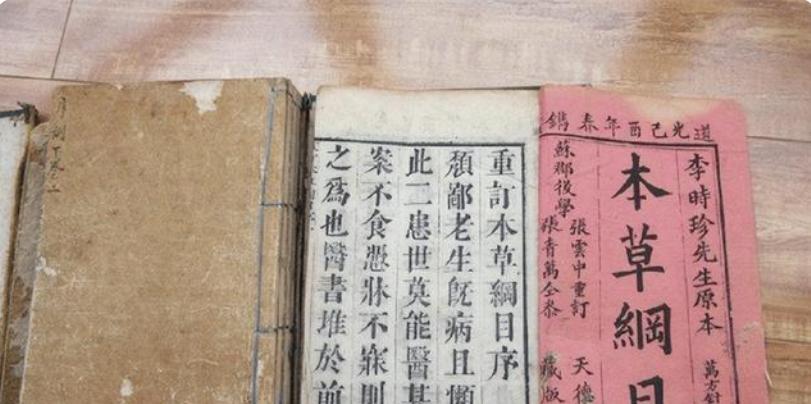 道光己酉年春鐫
李時珍先生原本
本草綱目
萬方
蘇郡後學
張雲中重訂
張青萬仝參
天德
藏版
重訂本草綱目序
頽鄙老生旣病且懶
此二患世莫能醫其
案不食慿牀不寐則
之爲也醫書堆於前